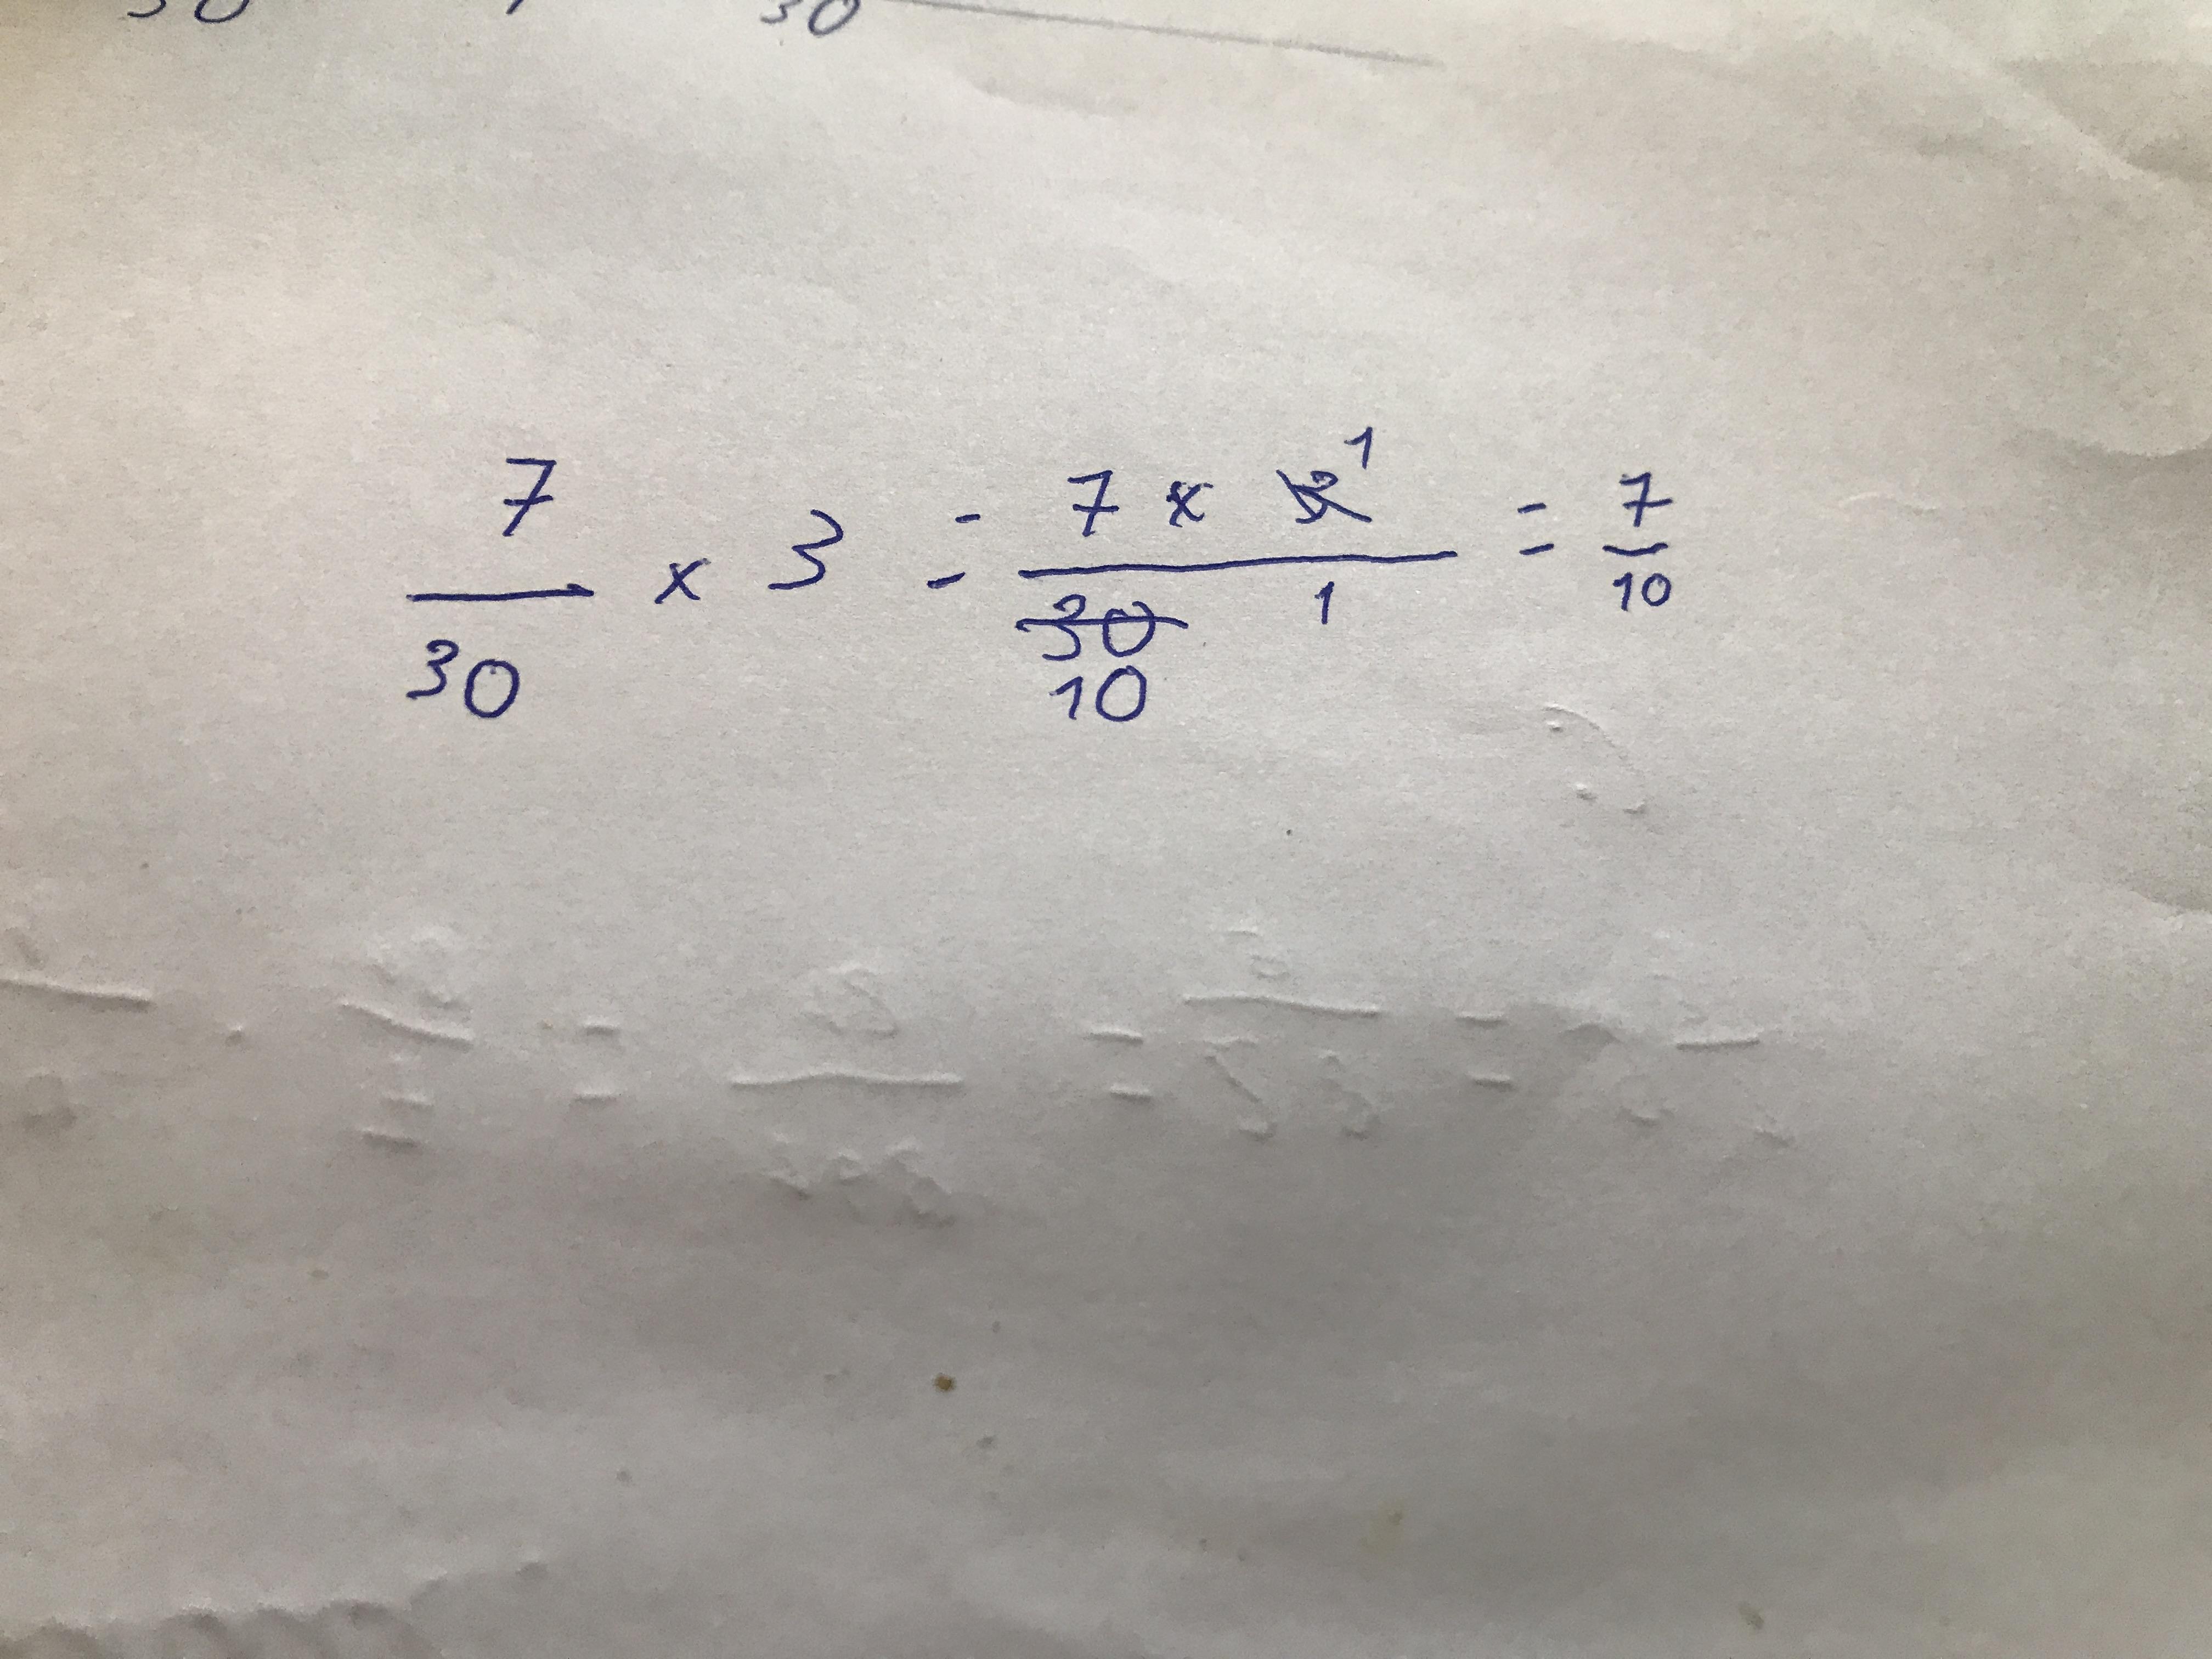 30 30
7/30 x 3 = 7 x 3 1 / 30 10 1 = 7/10